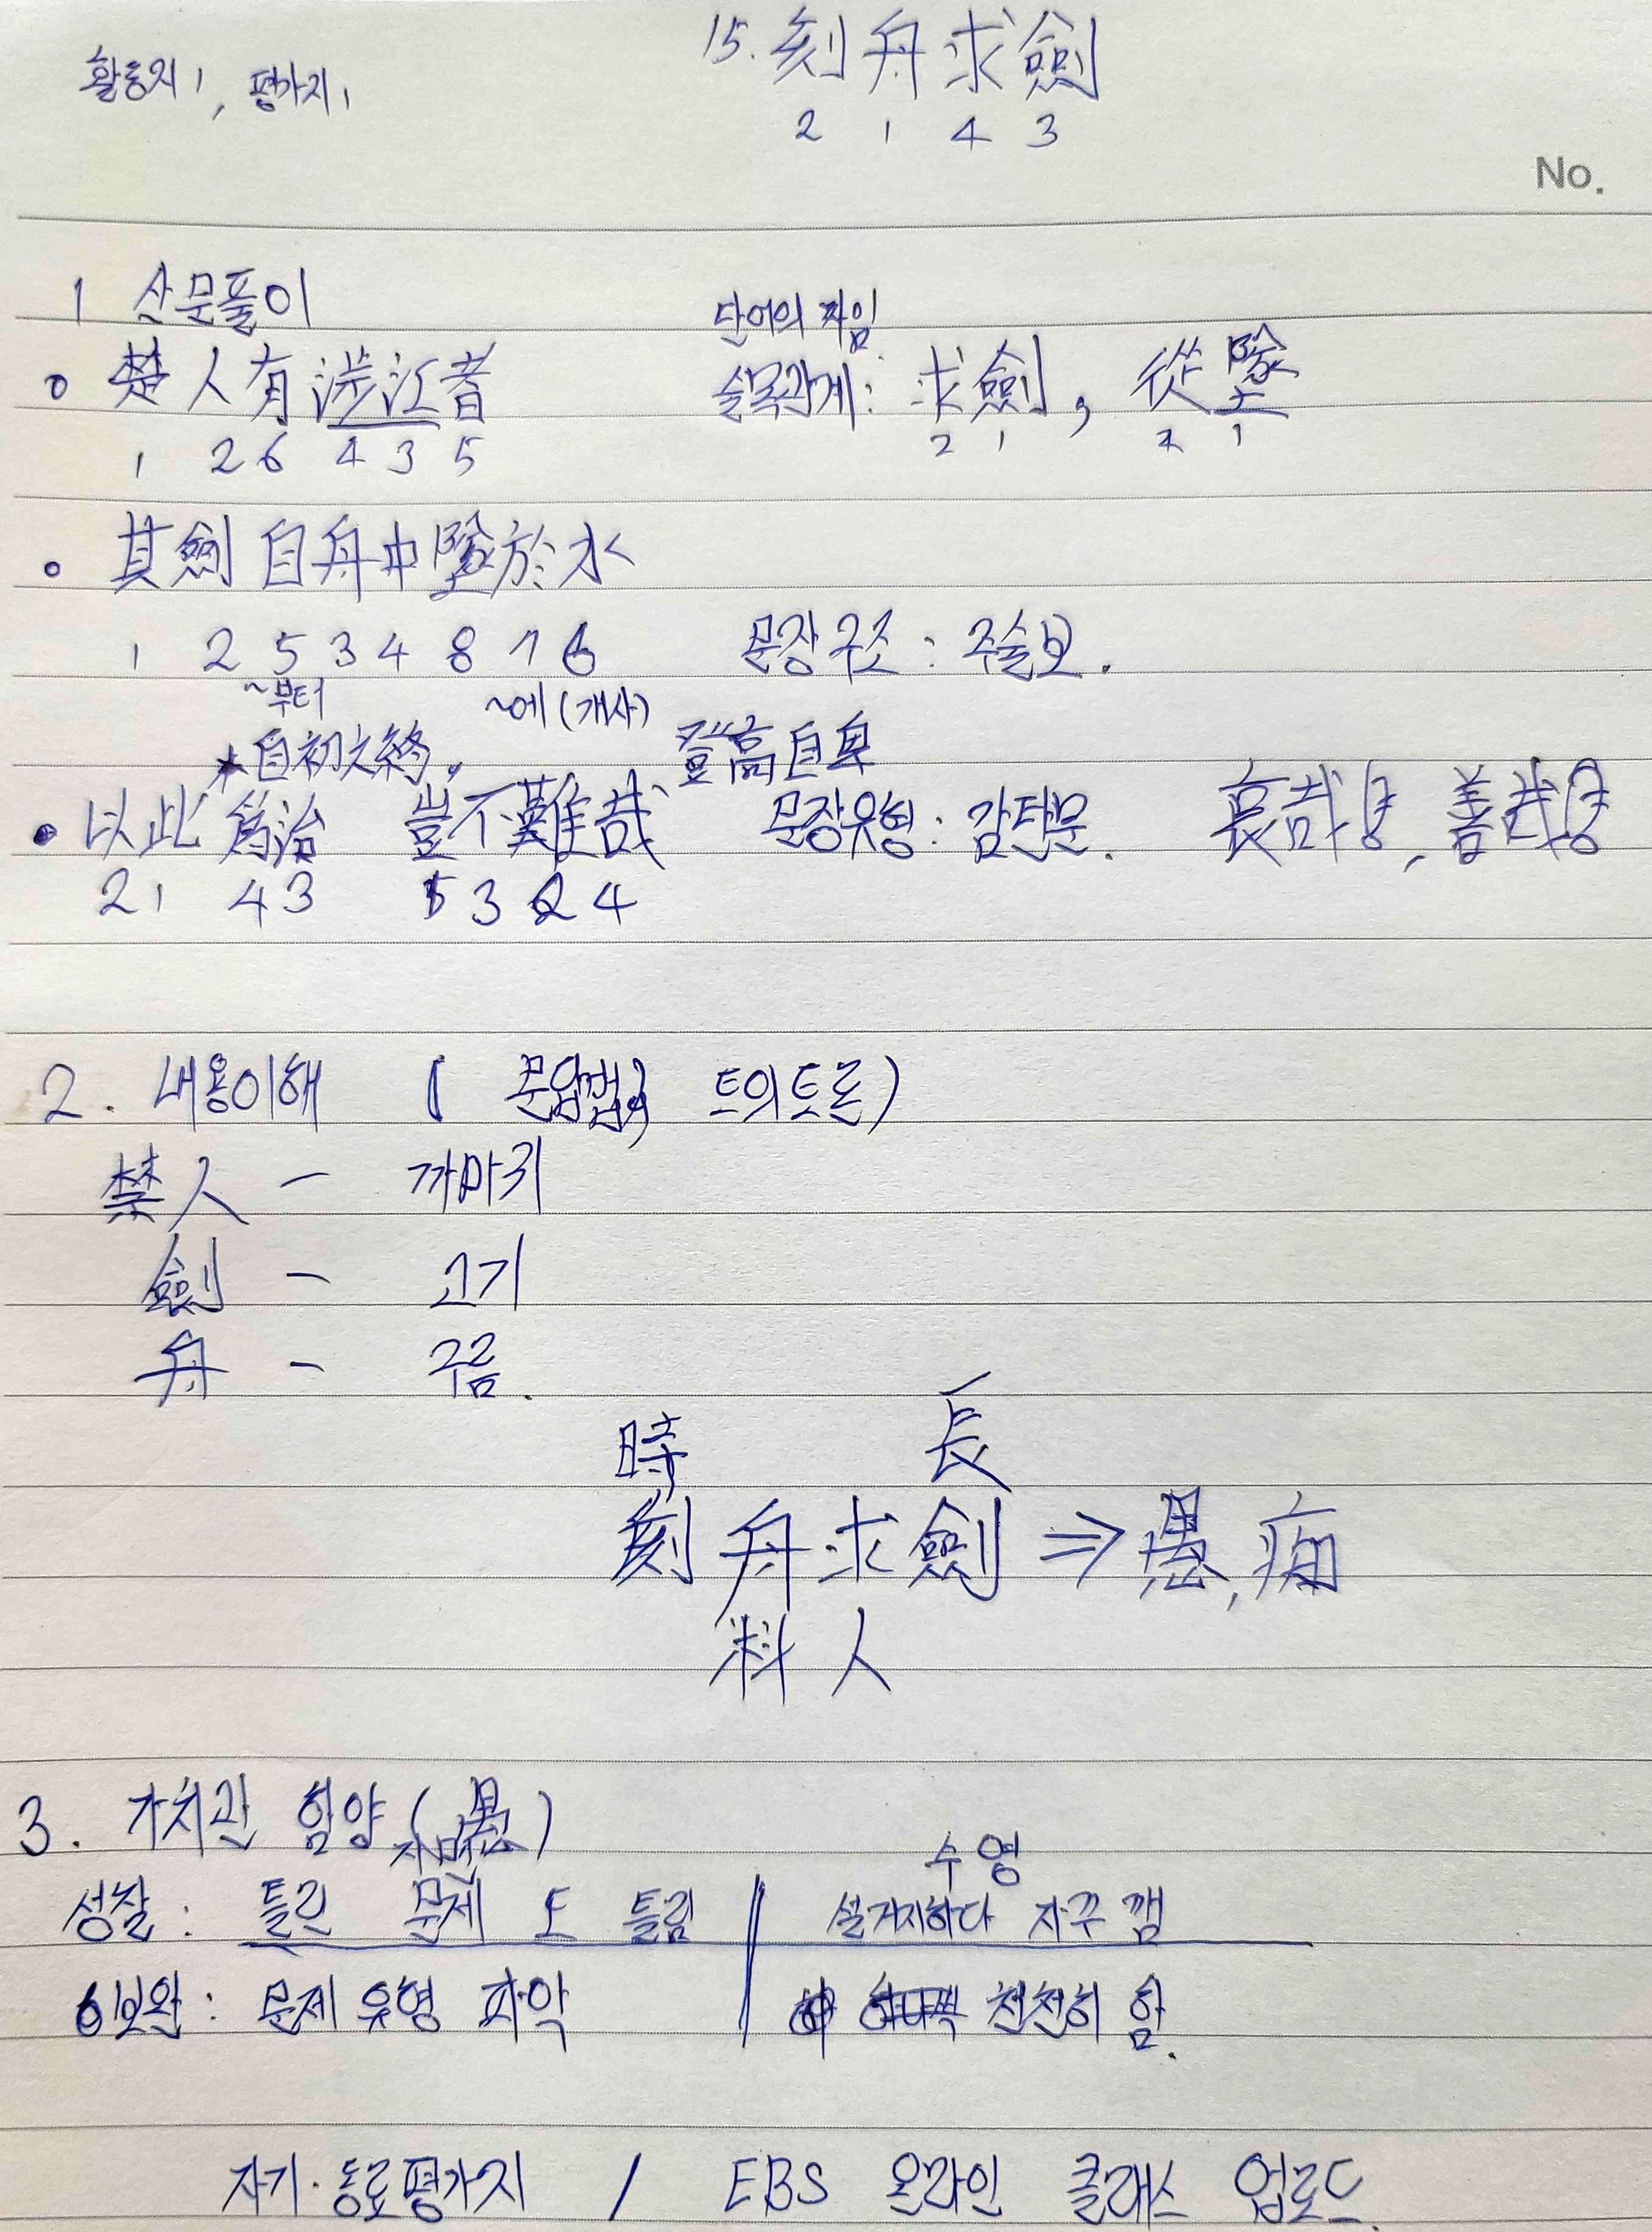 15. 刻舟求劍
활동지1, 평가지1
2 1 4 3
No.
1 산문풀이
단어의 짜임
○ 楚人有涉江者
술목관계: 求劍, 從墜
1 2 6 4 3 5
2 1 2 1
○ 其劍自舟中墜於水
1 2 5 3 4 8 7 6 문장구조: 주술보.
~부터 ~에(개사)
*自初之終, 登高自卑
• 以此爲治 豈不難哉 문장유형: 감탄문. 哀哉라, 善哉라
2 1 4 3 1 3 2 4
2. 내용이해 ( 문답법, 토의토론)
楚人 - 까마귀
劍 - 고기
舟 - 구름.
時 長
刻舟求劍 ⇒ 愚, 痴
料人
3. 가치관 함양 (愚)
수영
성찰: 틀린 문제 또 틀림 설거지하다 자꾸 깸
보완: 문제 유형 파악 천천히 함.
자기·동료평가지 / EBS 온라인 클래스 업로드.